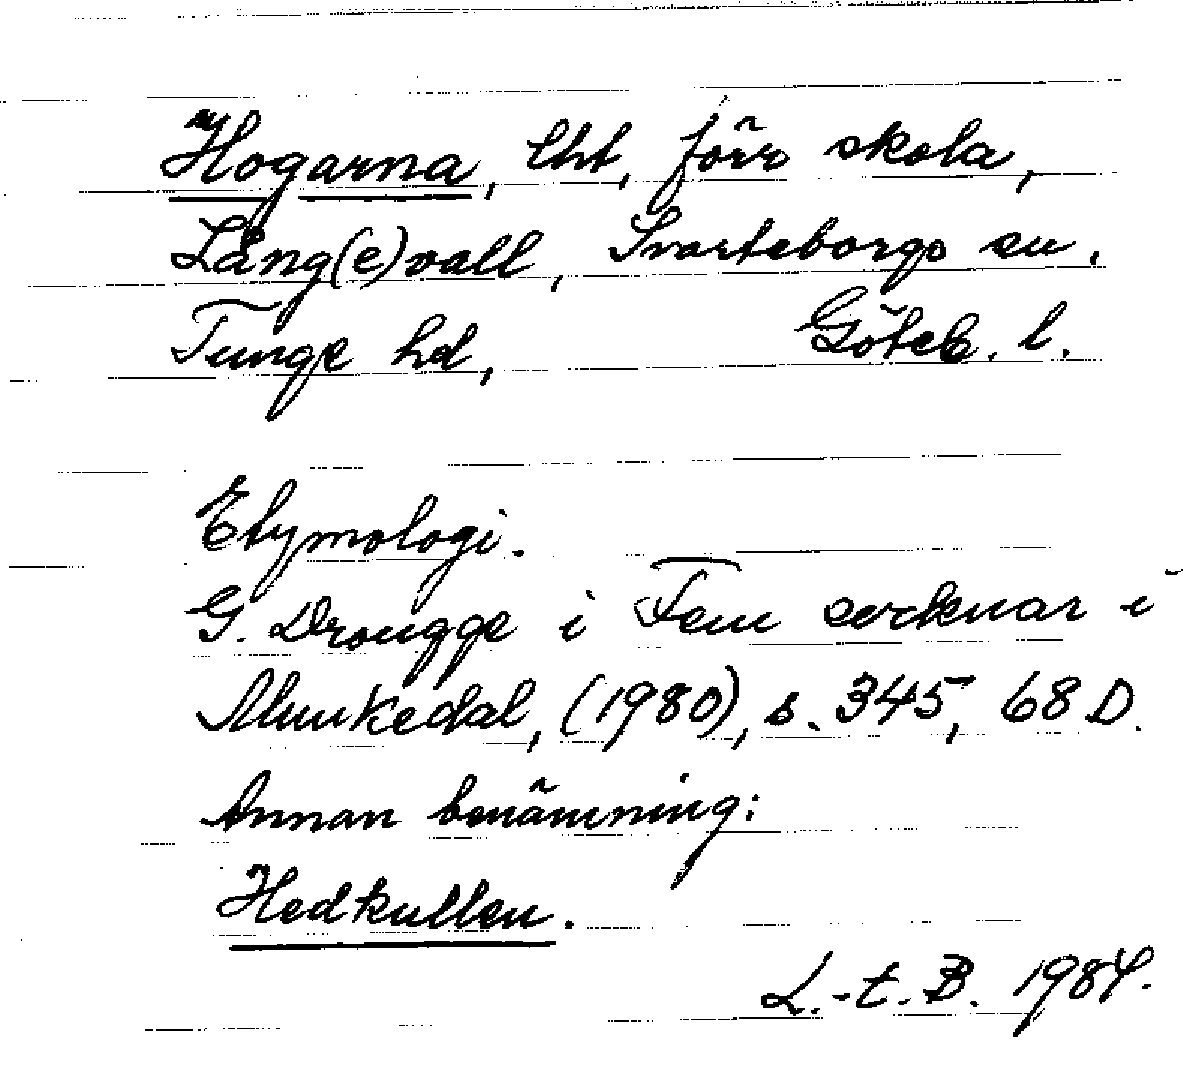 Hogarna, lht, förr skola,
Lång(e)vall, Svarteborgs sn.
Tunge hd, Göteb. l.
Etymologi.
G. Drougge i Fem socknar i
Munkedal, (1980), s. 345, 68 D.
Annan benämning:
Hedkullen.
L.-t. B. 1984.